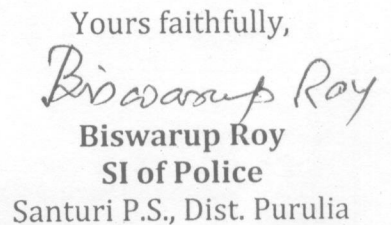 Yours faithfully,
Biswarup Roy
Biswarup Roy
SI of Police
Santuri P.S., Dist. Purulia